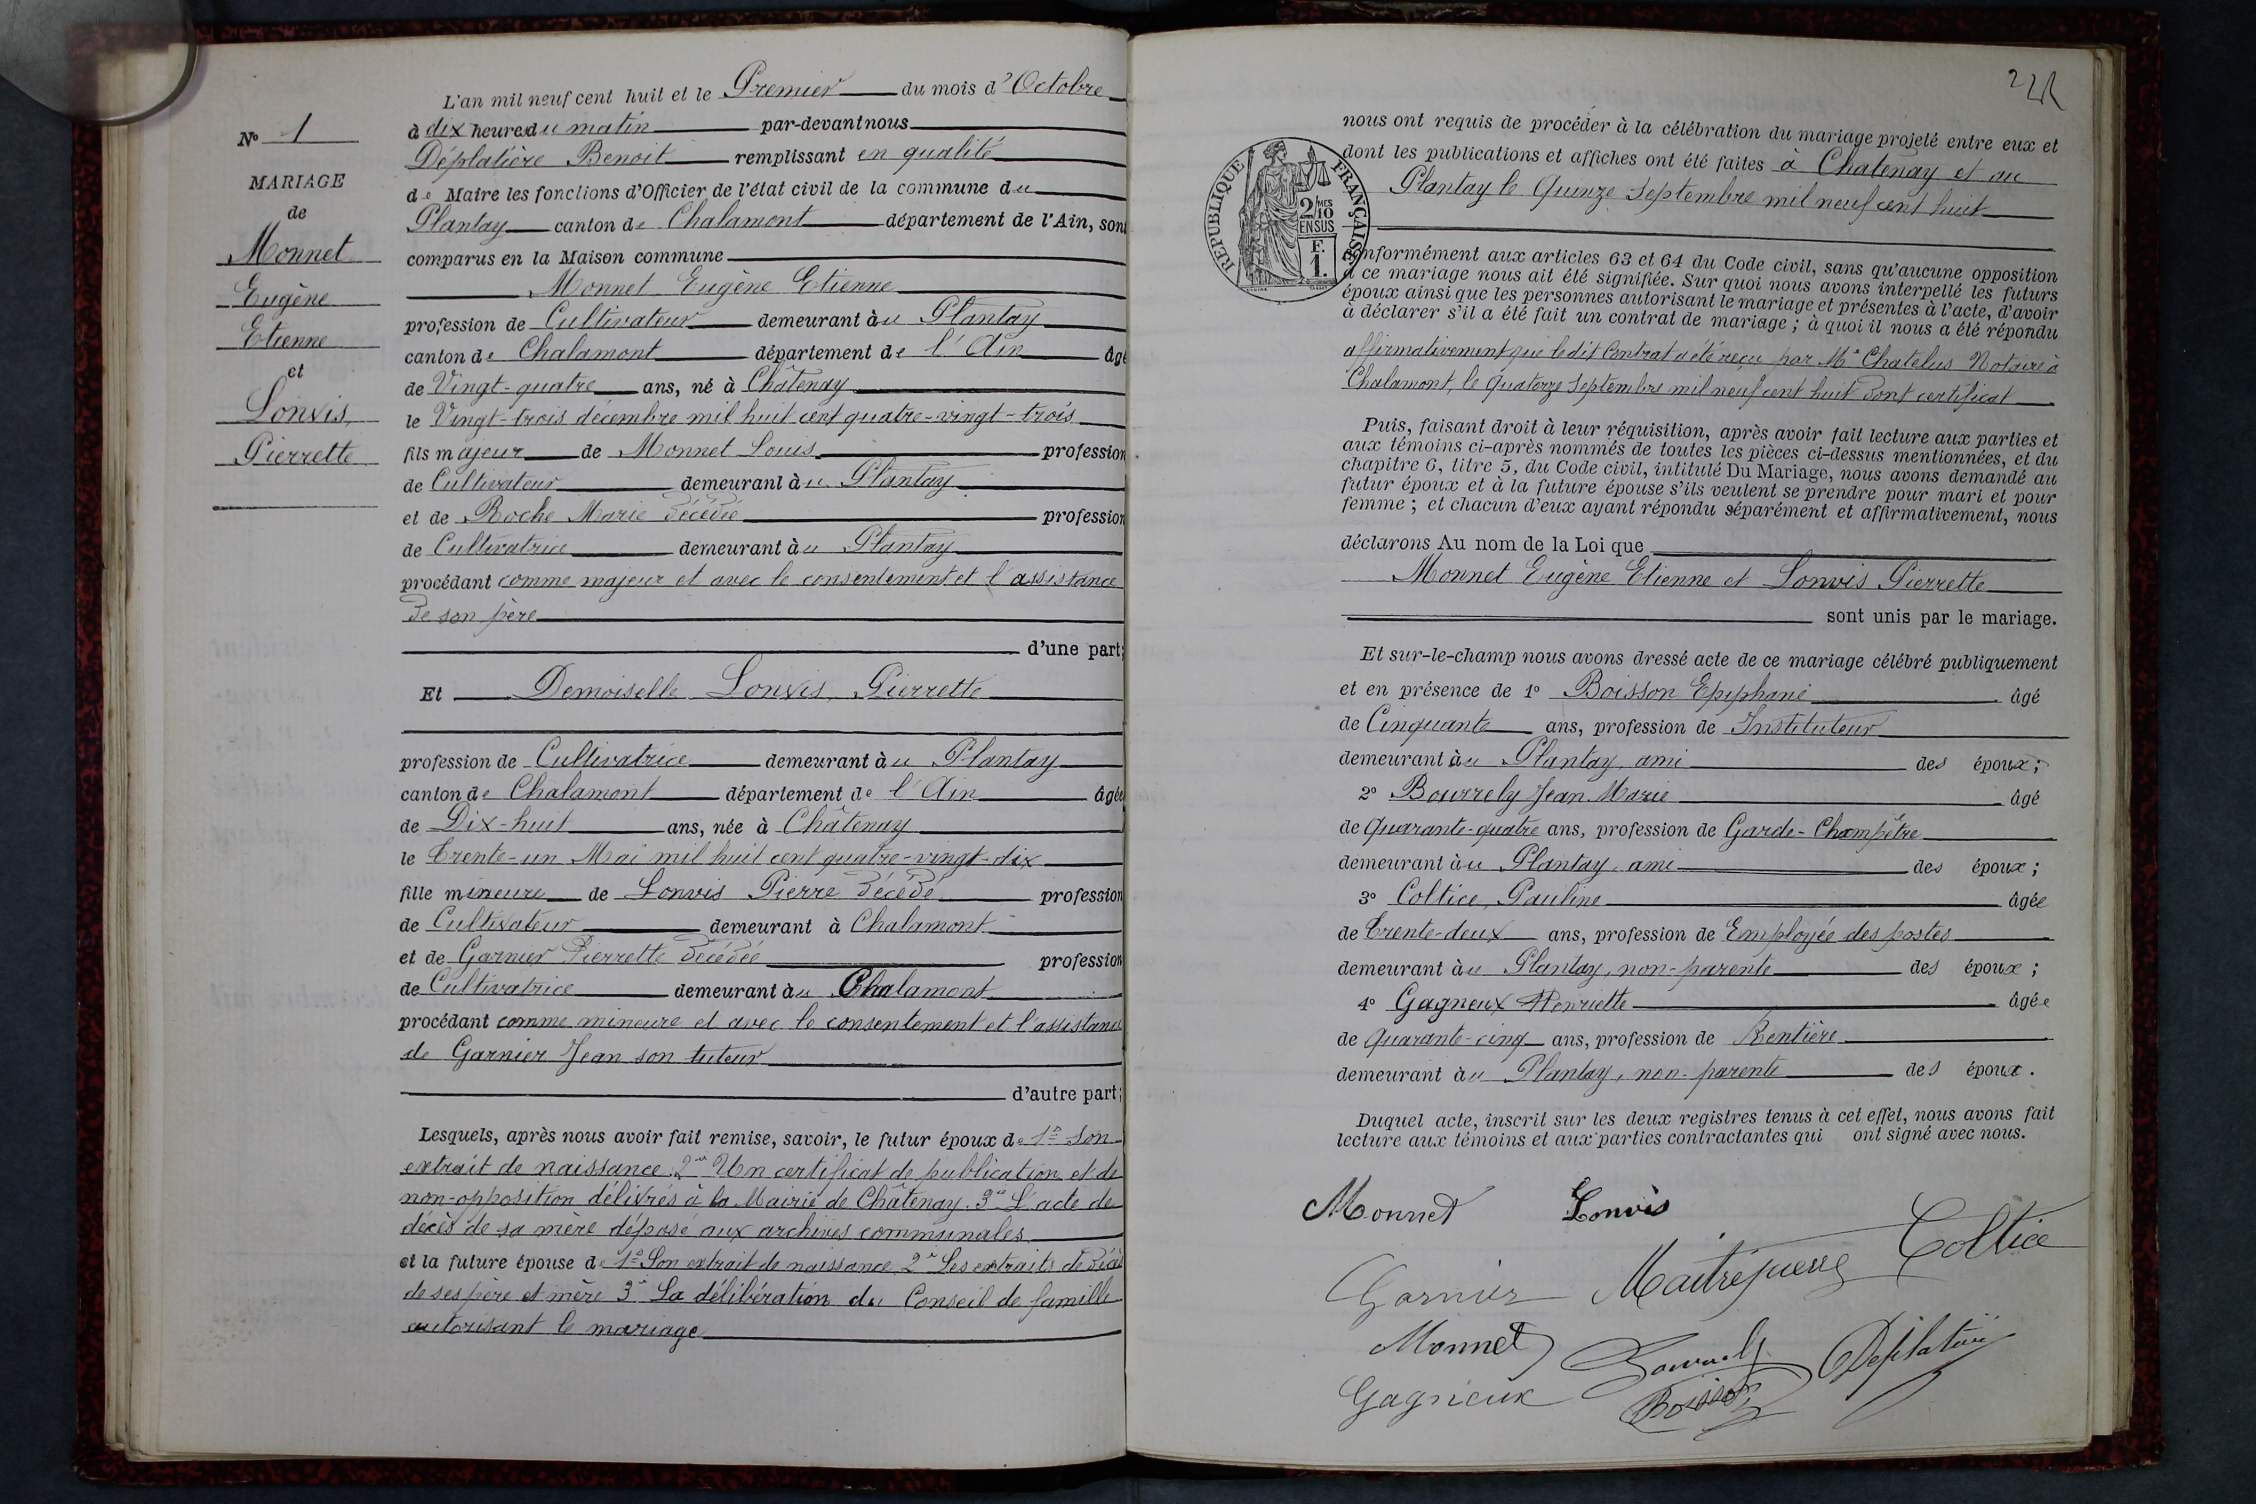 N° 1
MARIAGE
de
Monnet
Eugène
Etienne
et
Lonvis,
Pierrette
L'an mil neuf cent huit et le Premier du mois d'Octobre
à dix heures du matin par-devant nous
Déplatière Benoit remplissant en qualité
de Maire les fonctions d'Officier de l'état civil de la commune du
Plantay canton de Chalamont département de l'Ain, sont
comparus en la Maison commune
Monnet Eugène Etienne
profession de Cultivateur demeurant àu Plantay
canton de Chalamont département de l'Ain âgé
de Vingt-quatre ans, né à Châtenay
le Vingt-trois décembre mil huit cent quatre-vingt-trois
fils majeur de Monnet Louis profession
de Cultivateur demeurant àu Plantay
et de Roche Marie décédée profession
de Cultivatrice demeurant àu Plantay
procédant comme majeur et avec le consentement et l'assistance
de son père
d'une part;
Et Demoiselle Lonvis, Pierrette
profession de Cultivatrice demeurant àu Plantay
canton de Chalamont département de l'Ain âgée
de Dix-huit ans, née à Châtenay
le Trente-un Mai mil huit cent quatre-vingt-dix
fille mineure de Lonvis Pierre décédé profession
de Cultivateur demeurant à Chalamont
et de Garnier Pierrette décédée profession
de Cultivatrice demeurant àu Chalamont
procédant comme mineure et avec le consentement et l'assistance
de Garnier Jean son tuteur
d'autre part;
Lesquels, après nous avoir fait remise, savoir, le futur époux de 1° Son
extrait de naissance 2° Un certificat de publication et de
non-opposition délivrés à la Mairie de Châtenay. 3° L'acte de
décès de sa mère déposé aux archives communales
et la future épouse de 1° Son extrait de naissance 2° Les extraits de décès
de ses père et mère 3° La délibération du Conseil de famille
autorisant le mariage
RÉPUBLIQUE FRANÇAISE
2/10 MES
EN SUS
F.
1.
nous ont requis de procéder à la célébration du mariage projeté entre eux et
dont les publications et affiches ont été faites à Chatenay et au
Plantay le Quinze Septembre mil neuf cent huit
conformément aux articles 63 et 64 du Code civil, sans qu'aucune opposition
à ce mariage nous ait été signifiée. Sur quoi nous avons interpellé les futurs
époux ainsi que les personnes autorisant le mariage et présentes à l'acte, d'avoir
à déclarer s'il a été fait un contrat de mariage; à quoi il nous a été répondu
affirmativement que ledit Contrat a été reçu par Me Chatelus Notaire à
Chalamont, le quatorze Septembre mil neuf cent huit dont certificat
Puis, faisant droit à leur réquisition, après avoir fait lecture aux parties et
aux témoins ci-après nommés de toutes les pièces ci-dessus mentionnées, et du
chapitre 6, titre 5, du Code civil, intitulé Du Mariage, nous avons demandé au
futur époux et à la future épouse s'ils veulent se prendre pour mari et pour
femme; et chacun d'eux ayant répondu séparément et affirmativement, nous
déclarons Au nom de la Loi que
Monnet Eugène Etienne et Lonvis Pierrette
sont unis par le mariage.
Et sur-le-champ nous avons dressé acte de ce mariage célébré publiquement
et en présence de 1° Boisson Epiphane âgé
de Cinquante ans, profession de Instituteur
demeurant àu Plantay, ami des époux;
2° Bourrely Jean Marie âgé
de quarante-quatre ans, profession de Garde-Champêtre
demeurant àu Plantay, ami des époux;
3° Coltice, Pauline âgée
de Trente-deux ans, profession de Employée des postes
demeurant àu Plantay, non-parente des époux;
4° Gagneux Henriette âgée
de quarante-cinq ans, profession de Rentière
demeurant àu Plantay, non-parente des époux.
Duquel acte, inscrit sur les deux registres tenus à cet effet, nous avons fait
lecture aux témoins et aux parties contractantes qui ont signé avec nous.
Monnet Lonvis
Garnier Maitrepierre Coltice
Monnet Déplatière
Gagneux Boisson